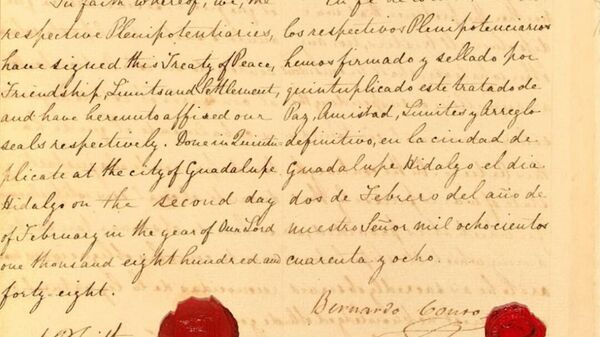 In faith whereof, we, the
respective Plenipotentiaries,
have signed this Treaty of Peace,
Friendship, Limits and Settlement,
and have hereunto affixed our
seals respectively. Done in Quintu-
plicate at the city of Guadalupe
Hidalgo on the second day
of February in the year of Our Lord
one thousand eight hundred and
forty eight.
los respectivos Plenipotenciarios
hemos firmado y sellado por
quintuplicado este tratado de
Paz, Amistad, Limites y Arreglo
definitivo, en la ciudad de
Guadalupe Hidalgo el dia
dos de Febrero del año de
nuestro Señor mil ochocientos
cuarenta y ocho.
Bernardo Couto